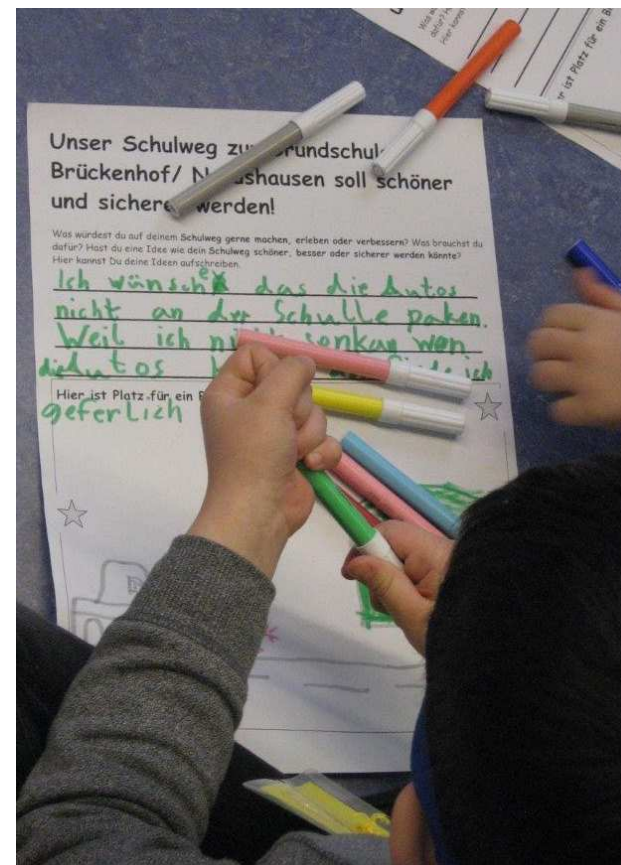 Unser Schulweg zu
Brückenhof/ N shausen soll schöner
und sicherer werden!
Was würdest du auf deinem Schulweg gerne machen, erleben oder verbessern? Was brauchst du
dafür? Hast du eine Idee wie dein Schulweg schöner, besser oder sicherer werden könnte?
Hier kannst Du deine Ideen aufschreiben.
Ich wünsche das die Autos
nicht an der Schulle paken.
Weil ich wen
die Autos ich
Hier ist Platz für ein
geferlich
ist Platz für ein